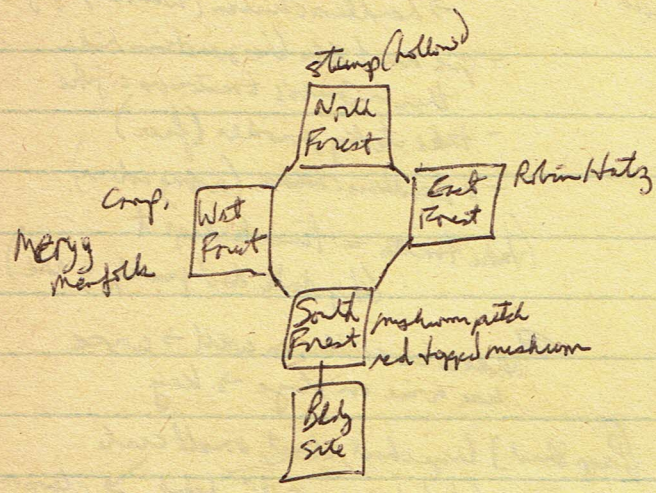 stump (hollow)
North
Forest
East
Forest
Robin Hats
Camp,
West
Forest
Meryy
menfolk
South
Forest
mushroom patch
red topped mushroom
Bldg
Site